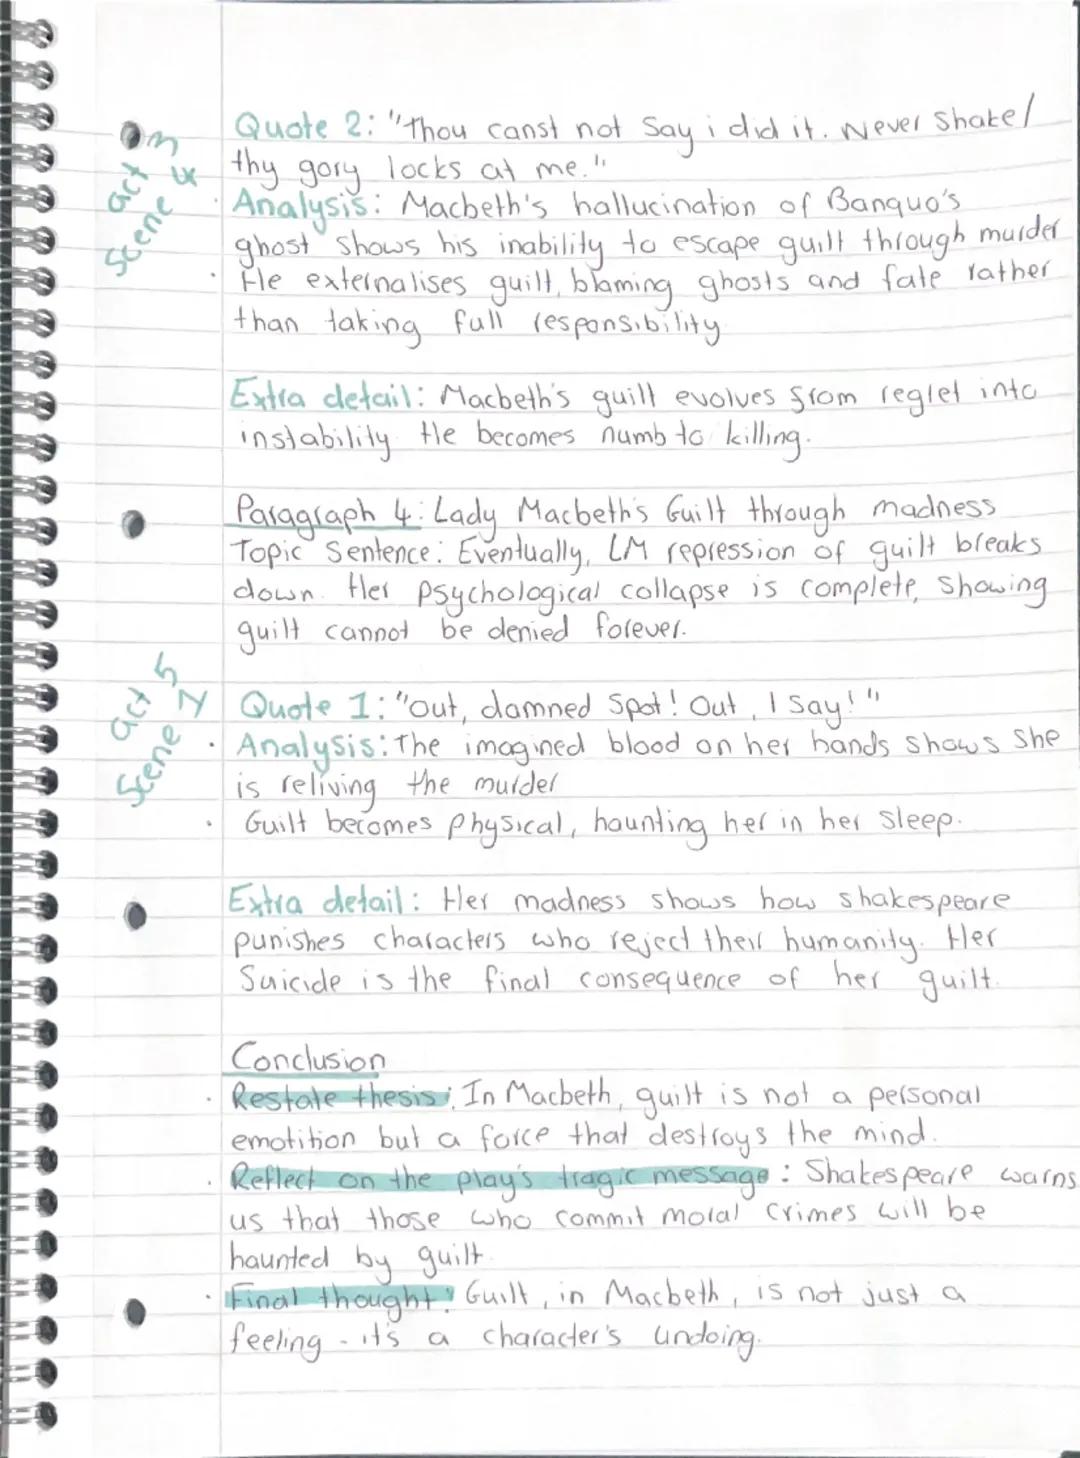 act 3
Scene 4
Quote 2: "Thou canst not say i did it. Never shake/
thy gory locks at me."
· Analysis: Macbeth's hallucination of Banquo's
ghost shows his inability to escape guilt through murder
· He externalises guilt, blaming ghosts and fate rather
than taking full responsibility
Extra detail: Macbeth's guilt evolves from regret into
instability. He becomes numb to killing.
Paragraph 4: Lady Macbeth's Guilt through madness
Topic Sentence: Eventually, LM repression of guilt breaks
down. Her psychological collapse is complete, showing
guilt cannot be denied forever.
act 5
Scene 1
Quote 1: "Out, damned Spot! Out, I say!"
· Analysis: The imagined blood on her hands shows she
is reliving the murder
· Guilt becomes physical, haunting her in her sleep.
Extra detail: Her madness shows how shakespeare
punishes characters who reject their humanity. Her
Suicide is the final consequence of her guilt.
Conclusion
· Restate thesis: In Macbeth, guilt is not a personal
emotition but a force that destroys the mind.
· Reflect on the play's tragic message: Shakespeare warns
us that those who commit moral crimes will be
haunted by guilt.
· Final thought: Guilt, in Macbeth, is not just a
feeling - it's a character's undoing.